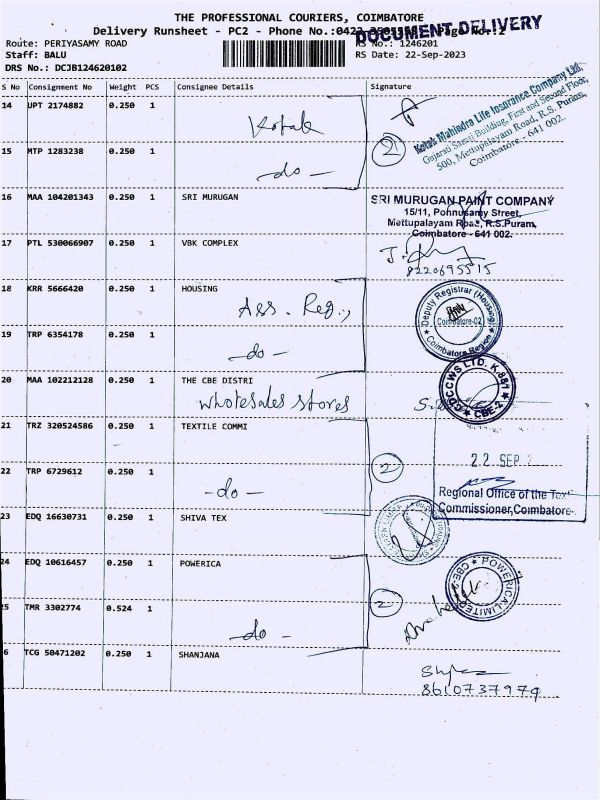 THE PROFESSIONAL COURIERS, COIMBATORE
Delivery Runsheet - PC2 - Phone No.:0422 Page No.:2
DOCUMENT DELIVERY
Route: PERIYASAMY ROAD RS No.: 1246201
Staff: BALU RS Date: 22-Sep-2023
DRS No.: DCJB124620102
S No Consignment No Weight PCS Consignee Details Signature
14 UPT 2174882 0.250 1 Kotak
Kotak Mahindra Life Insurance Company Ltd,
Gujarati Samaj Building, First and Second Floor,
500, Mettupalayam Road, R.S. Puram,
Coimbatore - 641 002.
15 MTP 1283238 0.250 1 -do- 2
16 MAA 104201343 0.250 1 SRI MURUGAN
SRI MURUGAN PAINT COMPANY
15/11, Ponnusamy Street,
Mettupalayam Road, R.S.Puram,
Coimbatore - 641 002.
17 PTL 530066907 0.250 1 VBK COMPLEX
8220695515
18 KRR 5666420 0.250 1 HOUSING
Ass. Reg.,
Deputy Registrar (Housing)
Coimbatore-02
Coimbatore Region
19 TRP 6354178 0.250 1
-do-
20 MAA 102212128 0.250 1 THE CBE DISTRI
wholesales stores
CDCCWS LTD. K.881
CBE-2
21 TRZ 320524586 0.250 1 TEXTILE COMMI
22 SEP 2
22 TRP 6729612 0.250 1 -do- 2
Regional Office of the Textile
Commissioner,Coimbatore-
23 EDQ 16630731 0.250 1 SHIVA TEX
24 EDQ 10616457 0.250 1 POWERICA
POWERICA LIMITED
CBE-2
25 TMR 3302774 0.524 1 2
-do-
6 TCG 50471202 0.250 1 SHANJANA
8610737979